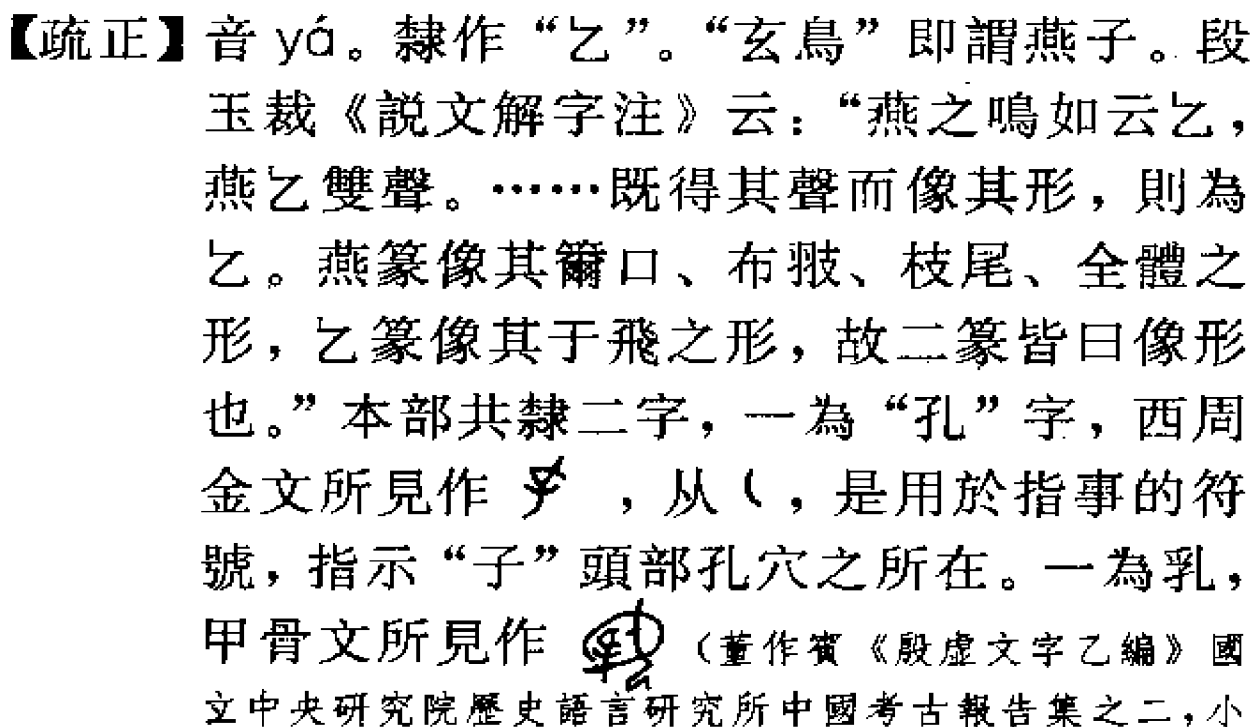 【疏正】音 yá。隸作“𠃉”。“玄鳥”即謂燕子。段
玉裁《説文解字注》云：“燕之鳴如云𠃉，
燕𠃉雙聲。……既得其聲而像其形，則為
𠃉。燕篆像其籋口、布翄、枝尾、全體之
形，𠃉篆像其于飛之形，故二篆皆曰像形
也。”本部共隸二字，一為“孔”字，西周
金文所見作 ，从 ，是用於指事的符
號，指示“子”頭部孔穴之所在。一為乳，
甲骨文所見作 （董作賓《殷虛文字乙編》國
立中央研究院歷史語言研究所中國考古報告集之二，小